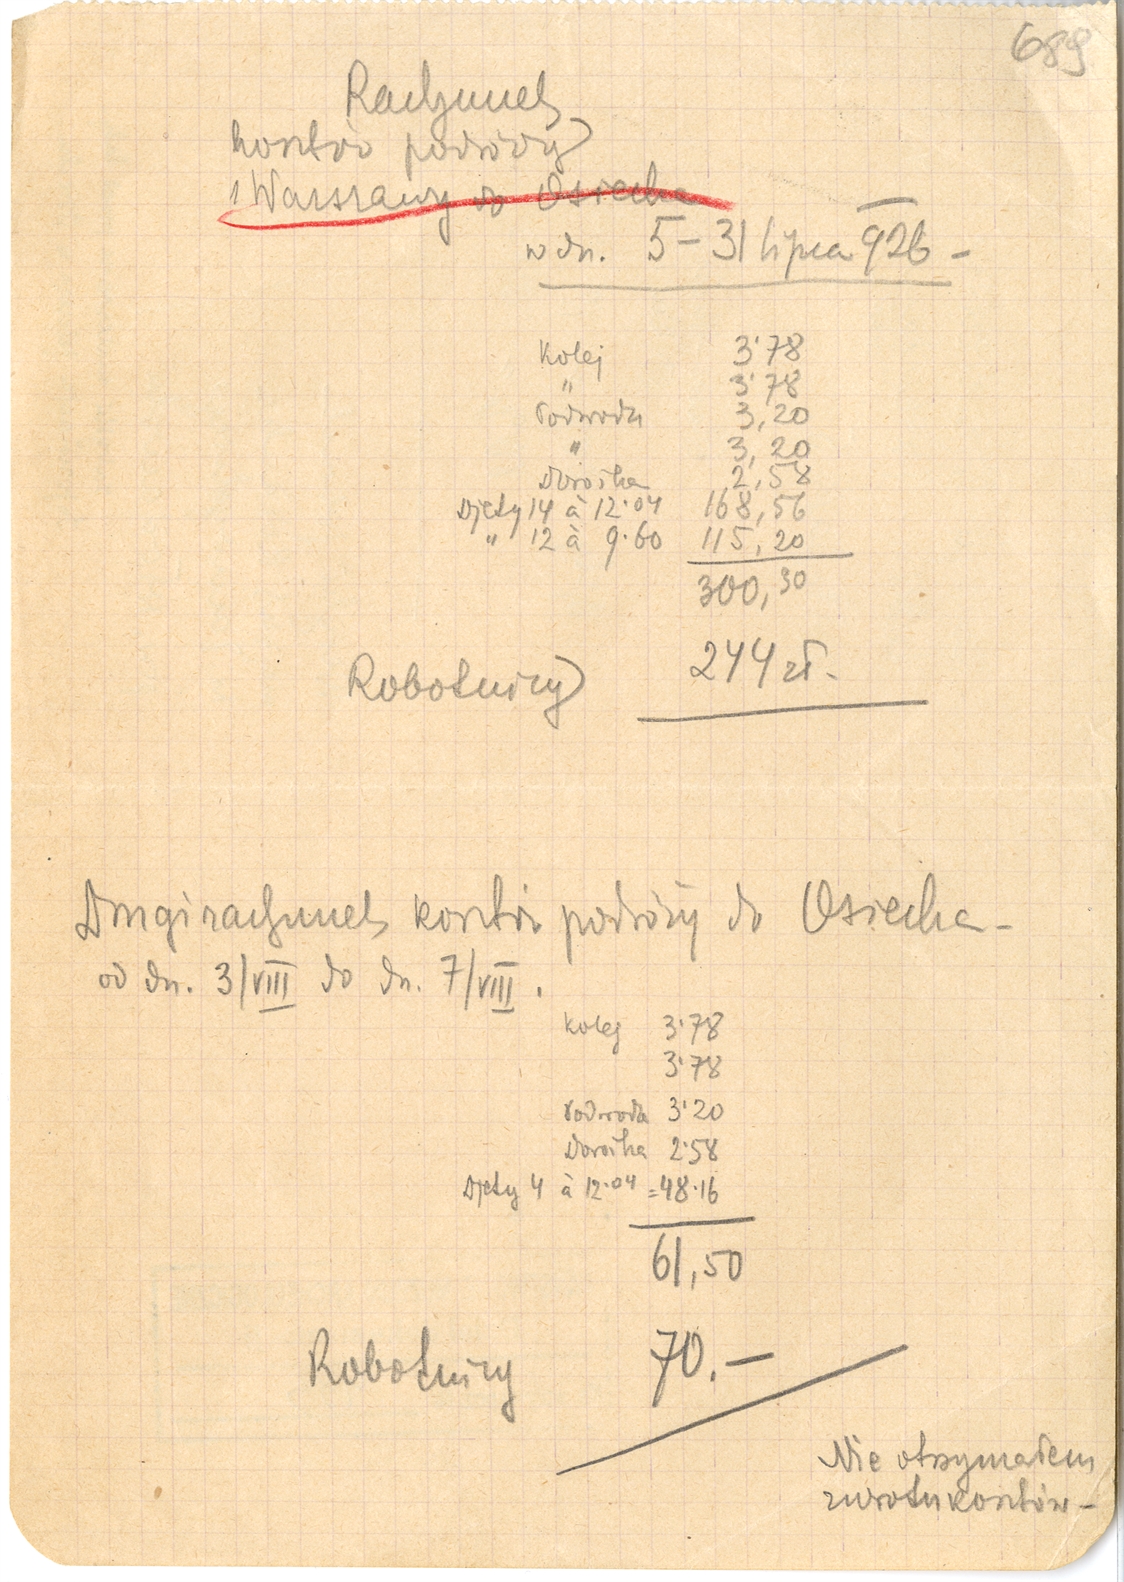 689
Rachunek
kosztów podróży
z Warszawy do Osiecka
w dn. 5–31 lipca 926 –
Kolej 3·78
" 3·78
Podwoda 3,20
" 3,20
Dorożka 2,58
Djety 14 à 12·04 168,56
" 12 à 9·60 115,20
300,30
Robotnicy 244 zł.
Drugi rachunek kosztów podróży do Osiecka –
od dn. 3/VIII do dn. 7/VIII.
Kolej 3·78
3·78
Podwoda 3·20
Dorożka 2·58
Djety 4 à 12·04 = 48·16
61,50
Robotnicy 70.–
Nie otrzymałem
zwrotu kosztów –